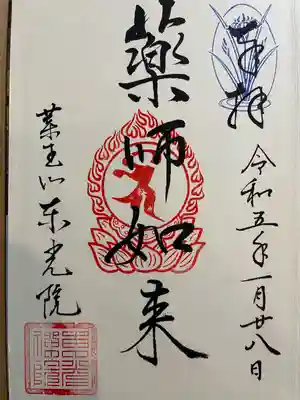 奉拝
令和五年一月廿八日
薬師如来
薬王山東光院